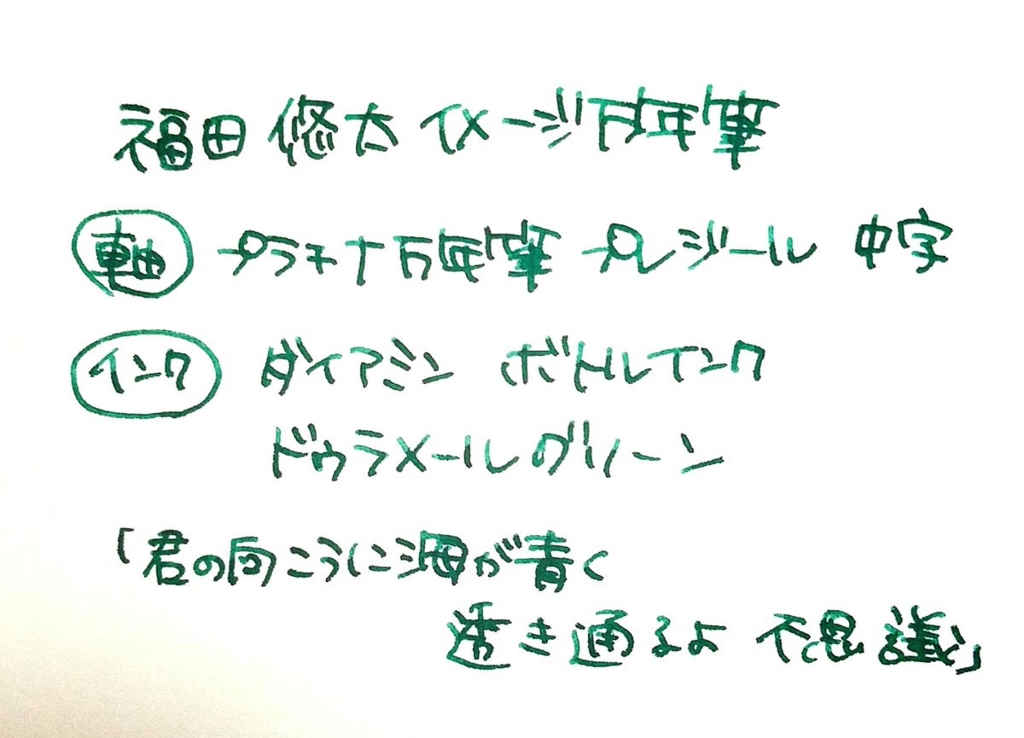 福田 悠太 イメージ万年筆
軸 プラチナ万年筆 プレジール 中字
インク ダイアミン ボトルインク
ドゥラメールグリーン
「君の向こうに海が青く
透き通るよ 不思議」